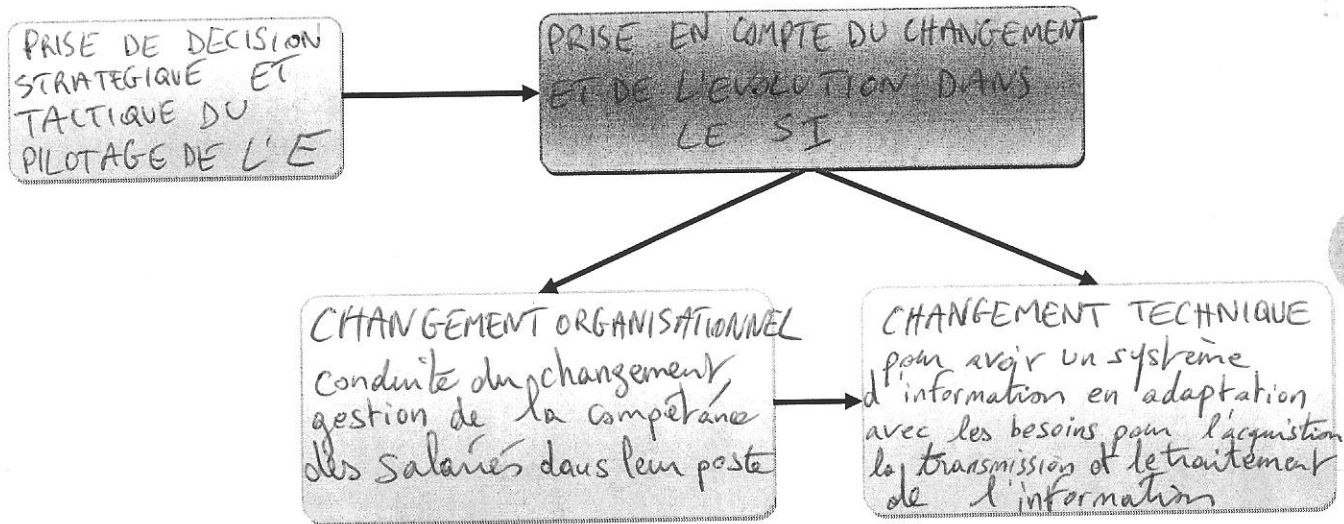 PRISE DE DECISION
STRATEGIQUE ET
TACTIQUE DU
PILOTAGE DE L'E
PRISE EN COMPTE DU CHANGEMENT
ET DE L'EVOLUTION DANS
LE SI
CHANGEMENT ORGANISATIONNEL
conduite du changement,
gestion de la compétance
des salariés dans leur poste
CHANGEMENT TECHNIQUE
pour avoir un système
d'information en adaptation
avec les besoins pour l'acquistion
la transmission et le traitement
de l'information